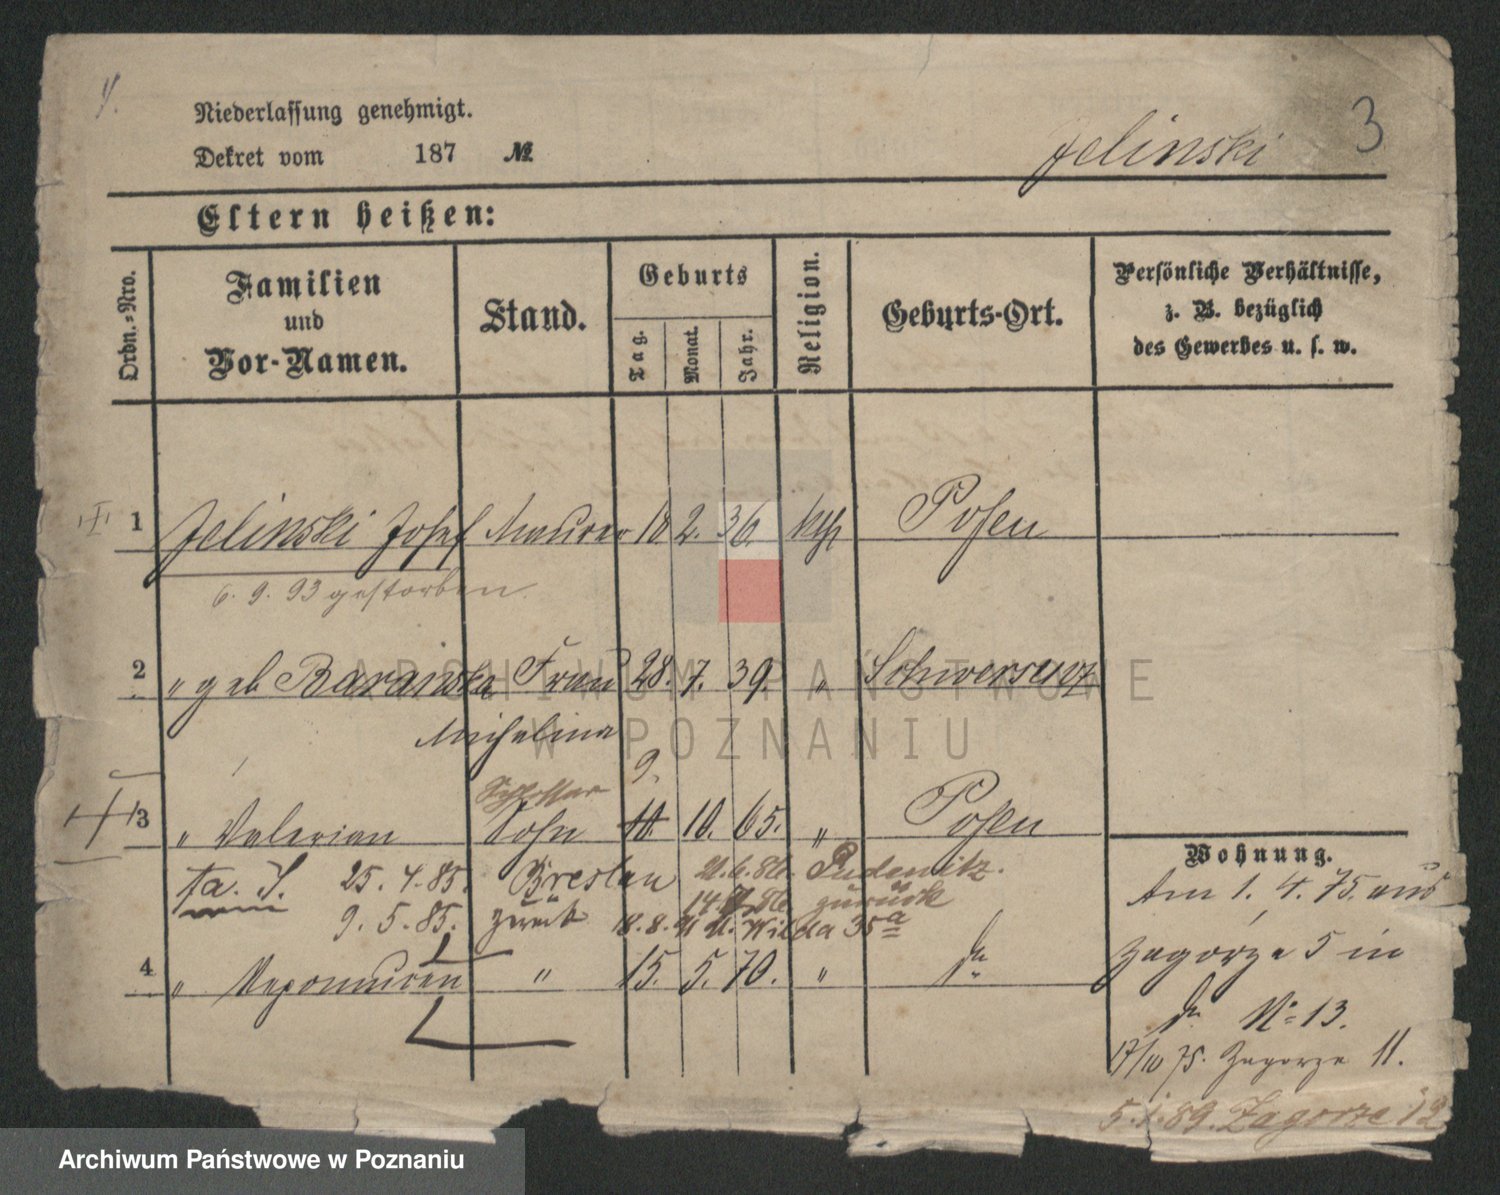 4.
Niederlassung genehmigt.
Dekret vom 187 №
Jelinski 3
Eltern heißen:
Ordn.-Nro.
Familien
und
Vor-Namen.
Stand.
Geburts
Tag.
Monat.
Jahr.
Religion.
Geburts-Ort.
Persönliche Verhältnisse,
z. B. bezüglich
des Gewerbes u. s. w.
1 Jelinski Josef Maurer 18 2. 36. kth Posen
6. 9. 93 gestorben.
2 " geb Baraiska Frau 28. 7. 39. " Schwersenz
Michalina
Schlosser 9.
3 " Valerian Sohn 10. 10. 65. " Posen
25. 4. 85. Breslau 21.6.86. Pudewitz.
9. 5. 85. zurück 14. 86 zurück
18.8. Wilda 35a
4 " Nepomucen " 15. 5. 70. " do
Wohnung.
Am 1. 4. 75. aus
Zagorze 5 in
do No 13.
17/10 75. Zagorze 11.
5.1.89. Zagorze 12
ARCHIWUM PAŃSTWOWE
W POZNANIU
Archiwum Państwowe w Poznaniu